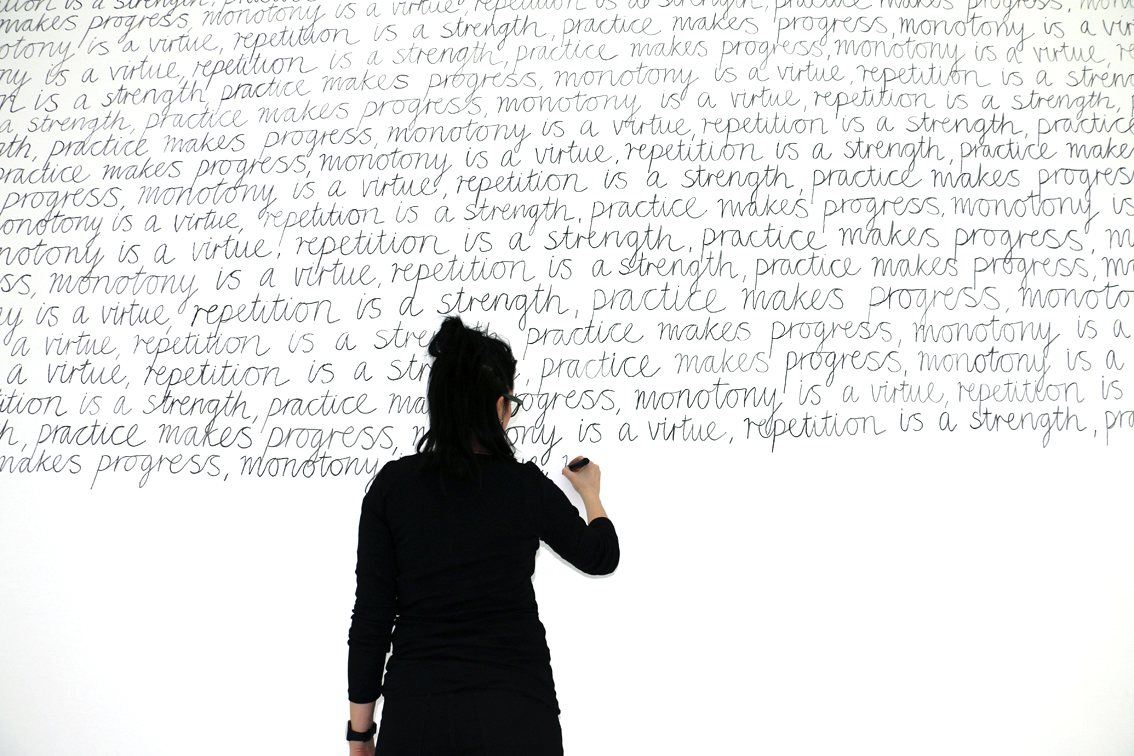 is a strength, practice makes progress, monotony is a virtue, repetition is a strength, practice makes progress,
makes progress, monotony is a virtue, repetition is a strength, practice makes progress, monotony is a
is a virtue, repetition is a strength, practice makes progress, monotony is a virtue,
is a virtue, repetition is a strength, practice makes progress, monotony is a virtue, repetition is a
is a strength, practice makes progress, monotony is a virtue, repetition is a strength,
a strength, practice makes progress, monotony is a virtue, repetition is a strength, practice
practice makes progress, monotony is a virtue, repetition is a strength, practice
practice makes progress, monotony is a virtue, repetition is a strength, practice makes
progress, monotony is a virtue, repetition is a strength, practice makes progress, monotony is
monotony is a virtue, repetition is a strength, practice makes progress,
monotony is a virtue, repetition is a strength, practice makes progress,
is a virtue, repetition is a strength, practice makes progress,
is a virtue, repetition is a strength, practice makes progress, monotony is a
a virtue, repetition is a practice makes progress, monotony is a
a virtue, repetition is a practice makes progress, monotony is a virtue, repetition is
is a strength, practice monotony is a virtue, repetition is a strength,
practice makes progress, is a virtue, repetition is a strength,
makes progress, monotony